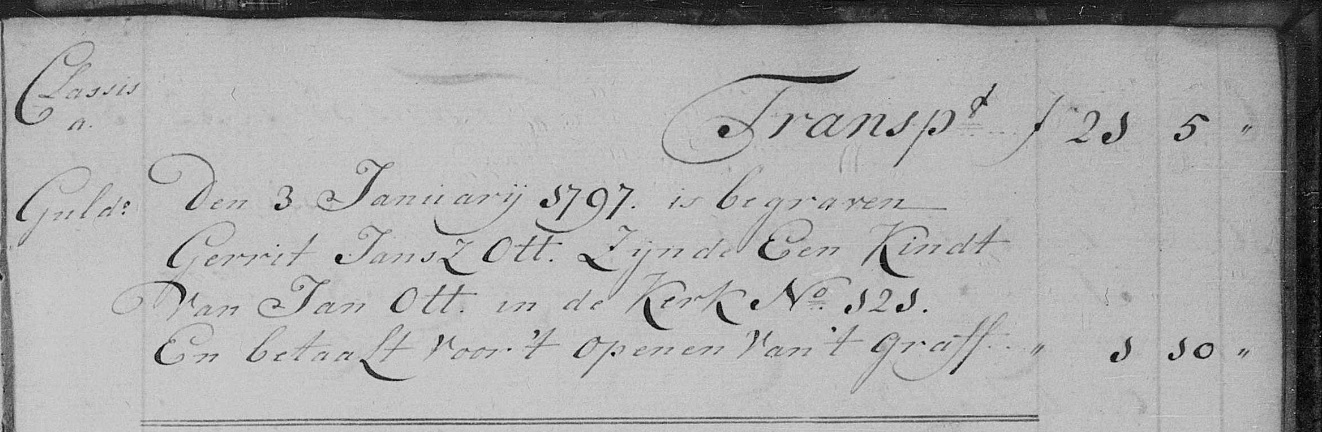 Classis
a.
Transp.d f 21 5 "
Guld:s Den 3 Januarij 1797. is begraven
Gerrit Jansz Ott. Zijnde Een Kindt
van Jan Ott. in de Kerk No. 121.
En betaalt voor 't openen van 't graff " 1 10 "